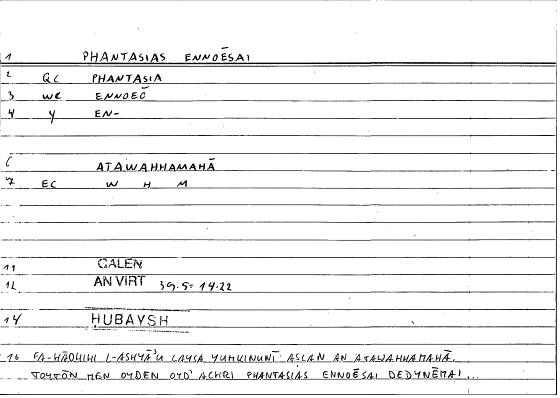 1 PHANTASIAS ENNOĒSAI
2 QC PHANTASIA
3 WC ENNOEŌ
4 Y EN-
6 ATAWAHHAMAHĀ
7 EC W H M
11 GALEN
12 AN VIRT 39.5= 14.22
14 ḤUBAYSH
16 FA-HĀḎIHI L-ASHYĀʾU LAYSA YUMKINUNĪ AṢLAN AN ATAWAHHAMAHĀ.
TOYTŌN MEN OYDEN OYD' ACHRI PHANTASIAS ENNOĒSAI DEDYNĒMAI ...